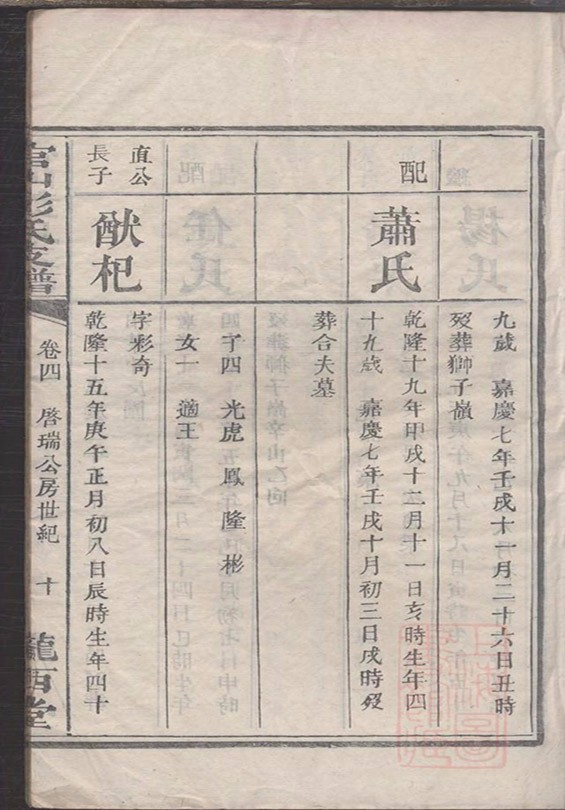 九歲 嘉慶七年壬戌十一月二十六日丑時
歿葬獅子嶺
配
蕭氏
乾隆十九年甲戌十二月十一日亥時生年四
十九歲 嘉慶七年壬戌十月初三日戌時歿
葬合夫墓
子四 光虎 鳳 隆 彬
女一 適王
直公
長子
猷杞
字彩奇
乾隆十五年庚午正月初八日辰時生年四十
官山彭氏支譜
卷四 啓瑞公房世紀 十
隴西堂